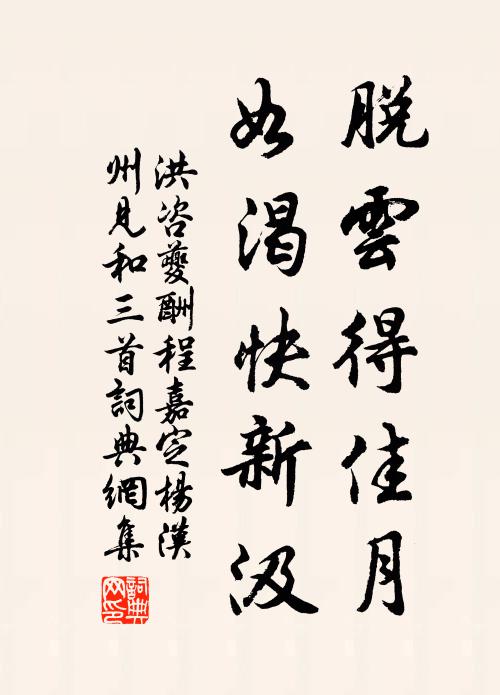 脱雲得佳月
如渴快新汲
洪咨夔酬程嘉定楊漢
州見和三首詞典網集
詞典
网印